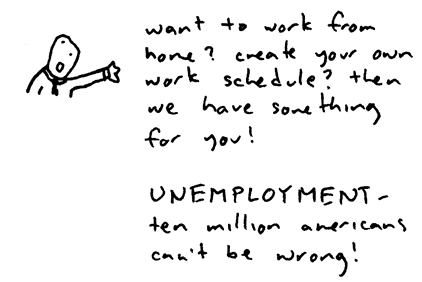 want to work from
home? create your own
work schedule? then
we have something
for you!
UNEMPLOYMENT-
ten million americans
can't be wrong!